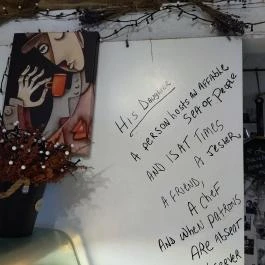 HIS Daughter
A PERSON HOSTS AN AFFABLE
SEA OF PEOPLE
AND IS AT TIMES
A JESTER
A FRIEND,
A CHEF
AND WHEN PATRONS
ARE ABSENT